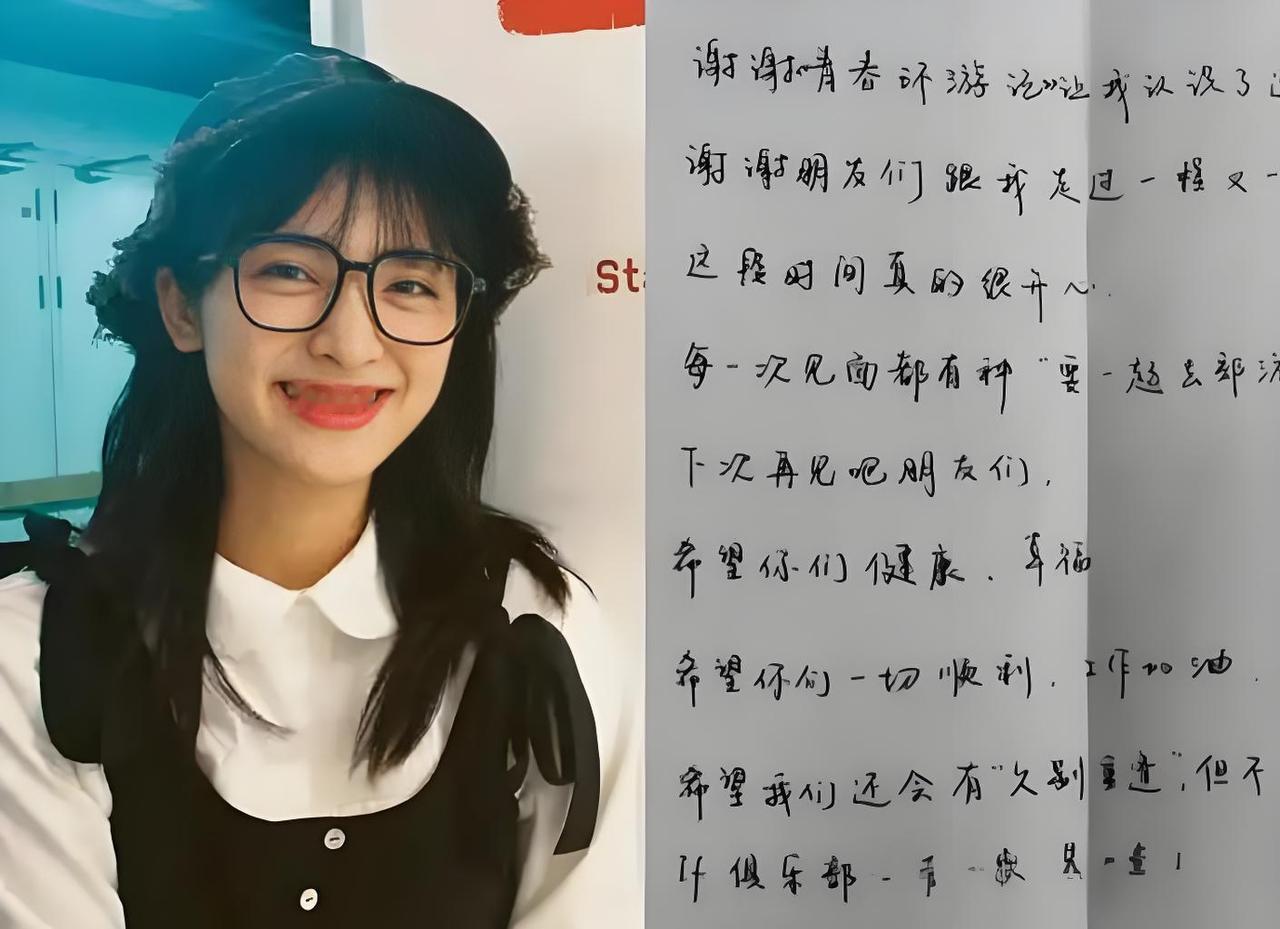 St
谢谢《青春环游记》让我认识了
谢谢朋友们跟我走过一程又一
这段时间真的很开心.
每一次见面都有种“要一起去郊游
下次再见吧朋友们,
希望你们健康. 幸福
希望你们一切顺利. 工作加油.
希望我们还会有“久别重逢”,但不
If 俱乐部一